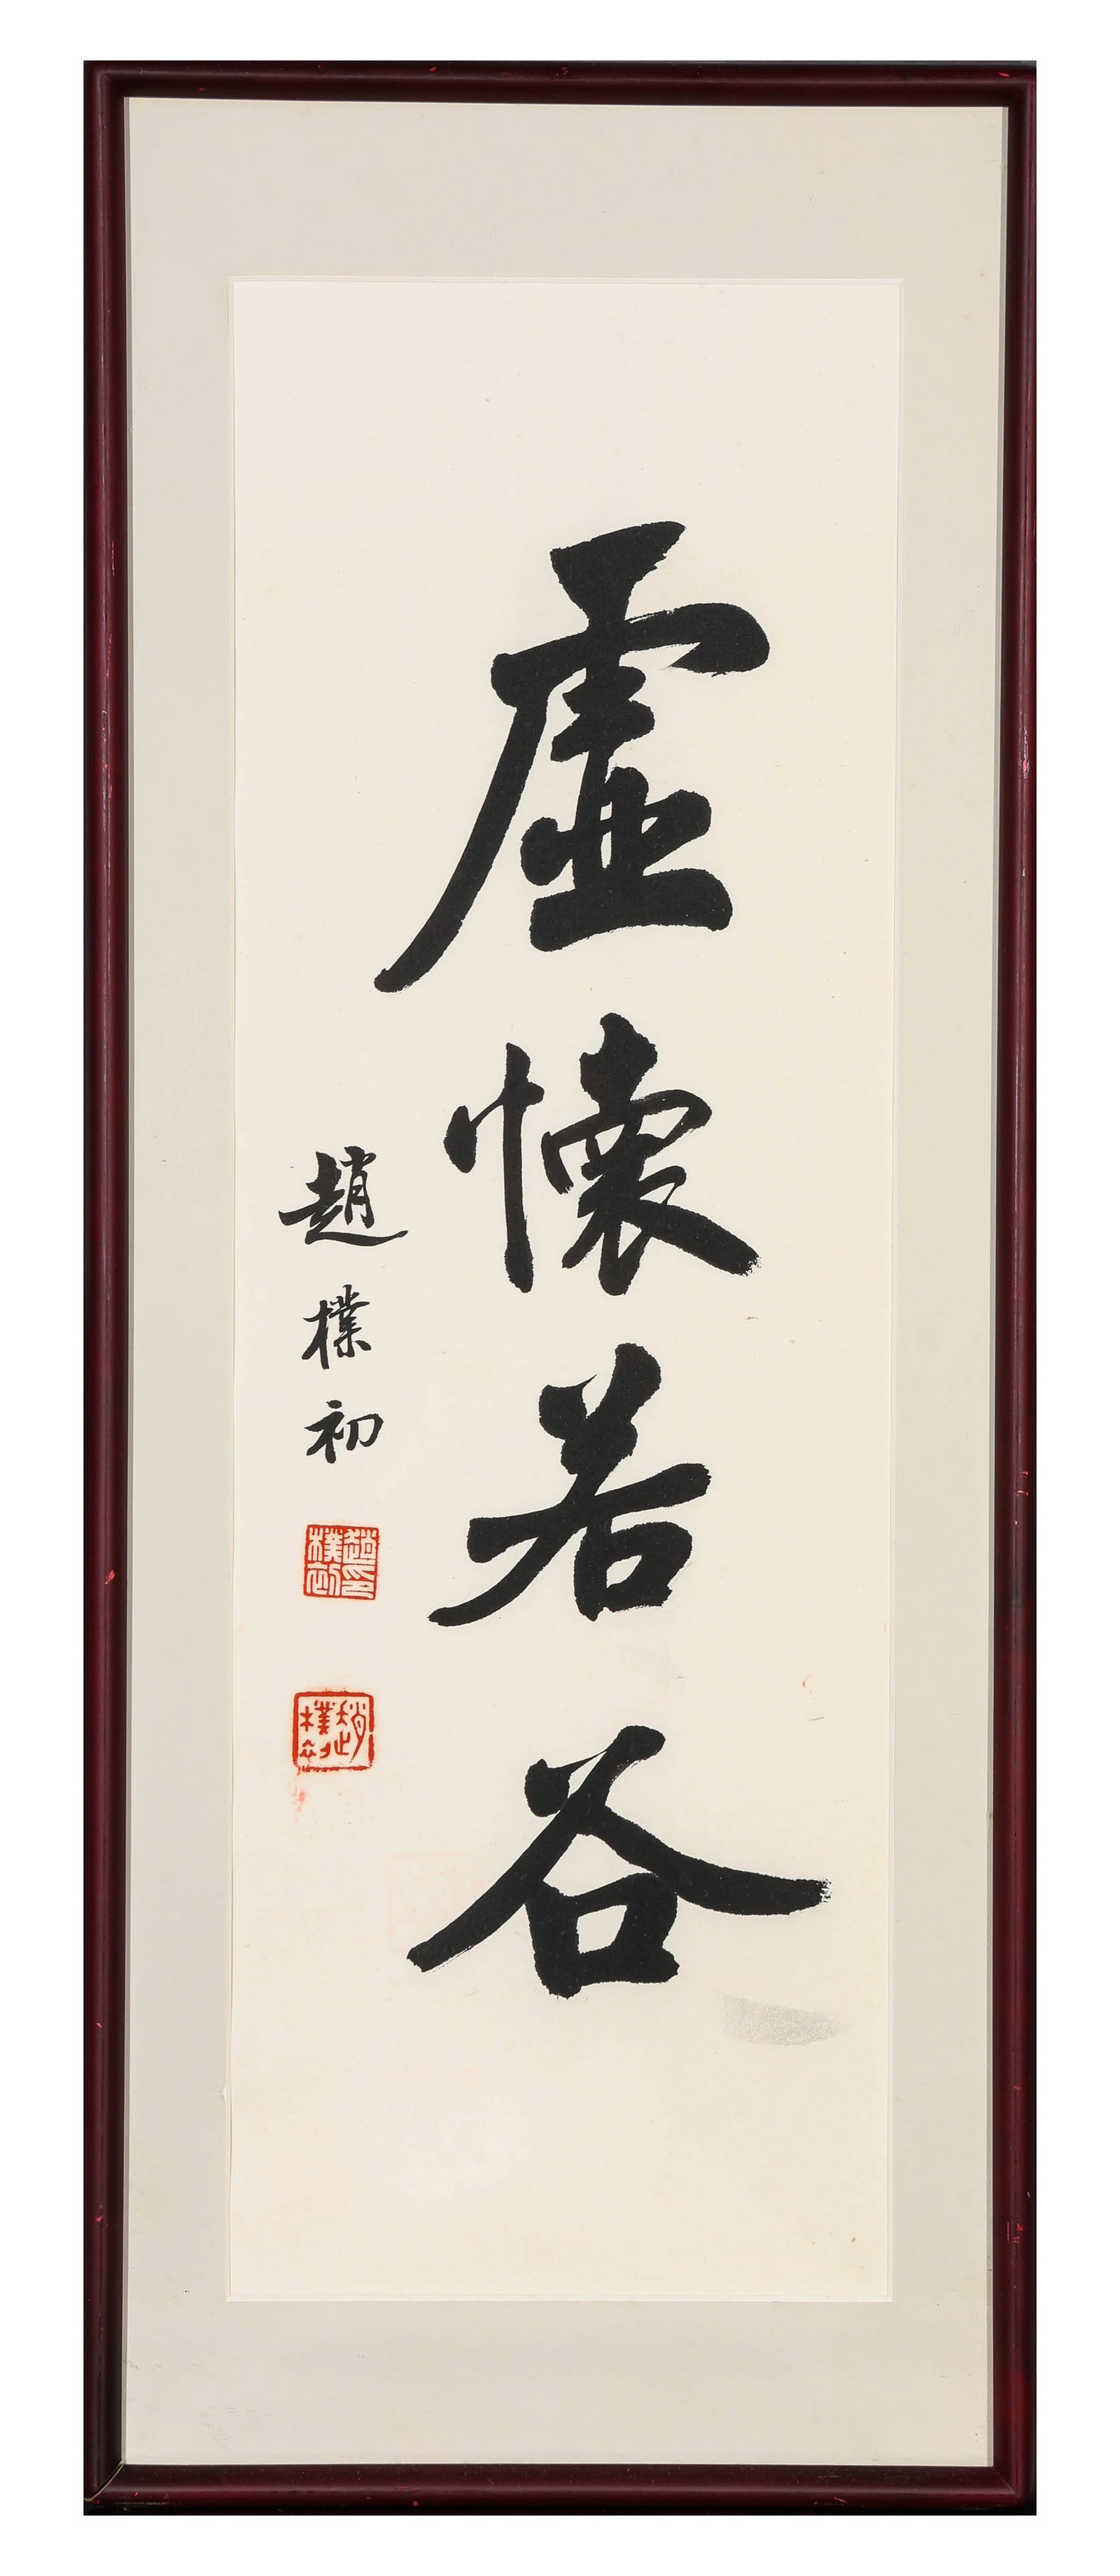 虛懷若谷
趙樸初
趙樸初印
趙樸初